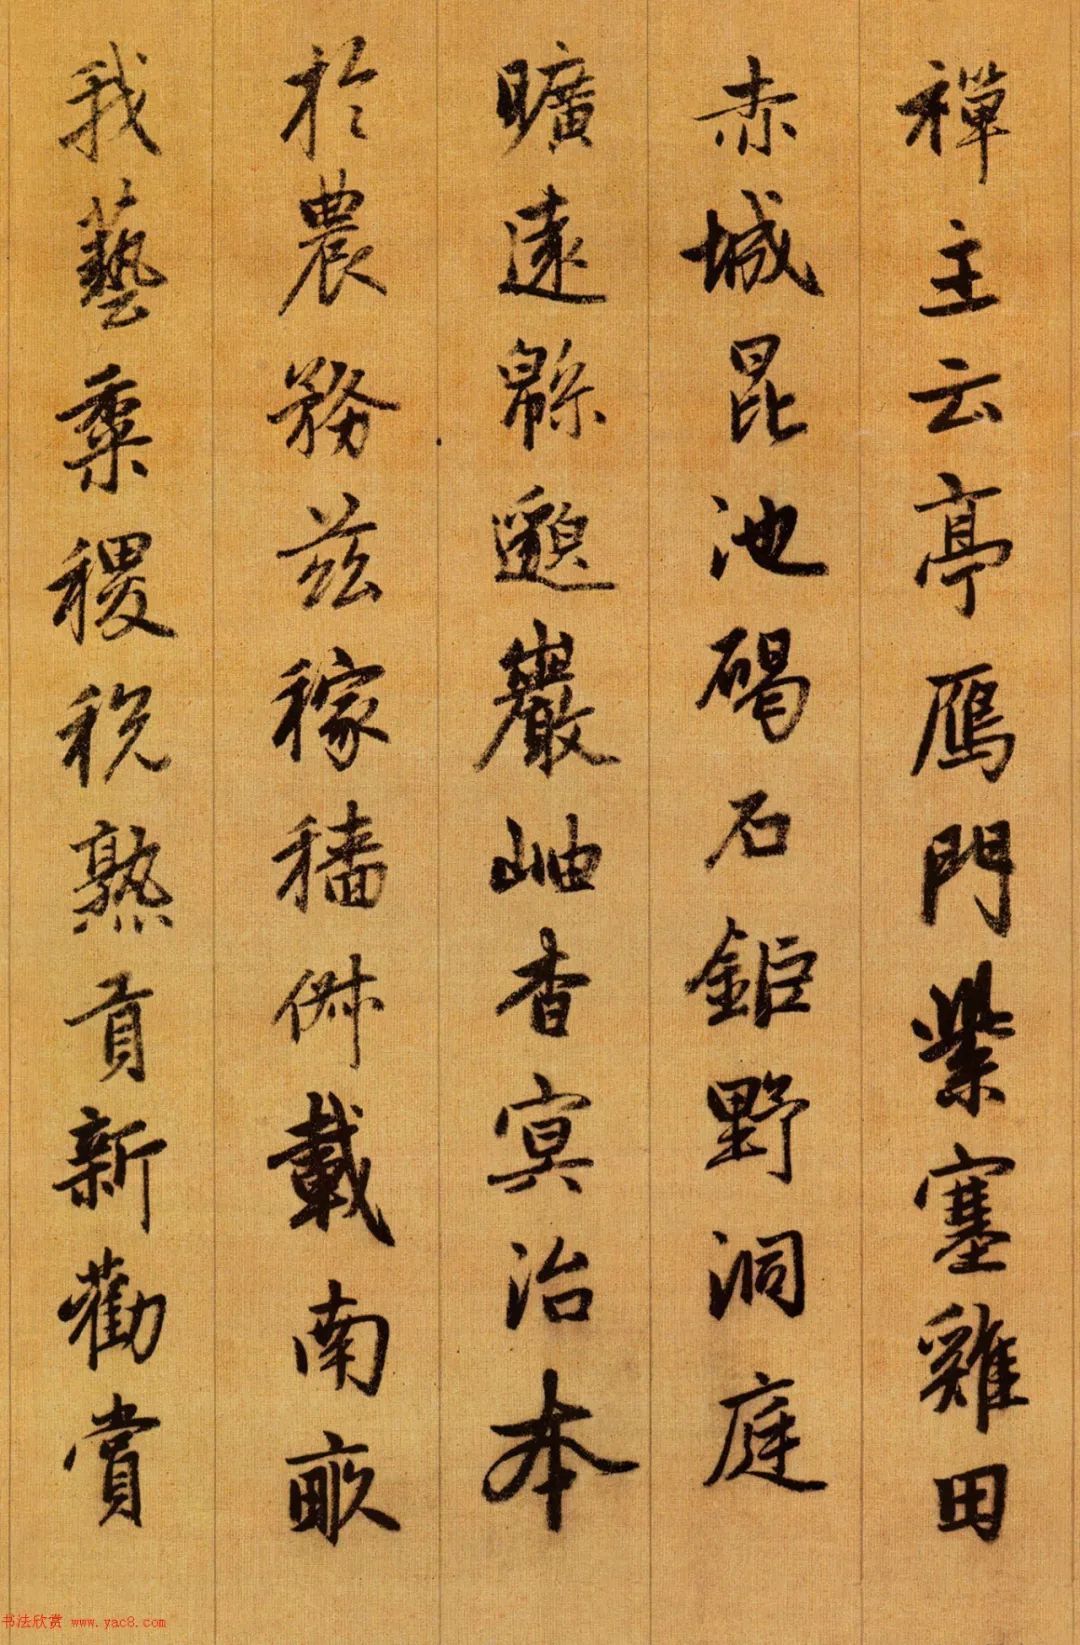 禪主云亭鴈門紫塞雞田
赤城昆池碣石鉅野洞庭
曠遠緜邈巖岫杳冥治本
於農務茲稼穡俶載南畝
我藝黍稷稅熟貢新勸賞
书法欣赏 www.yac8.com